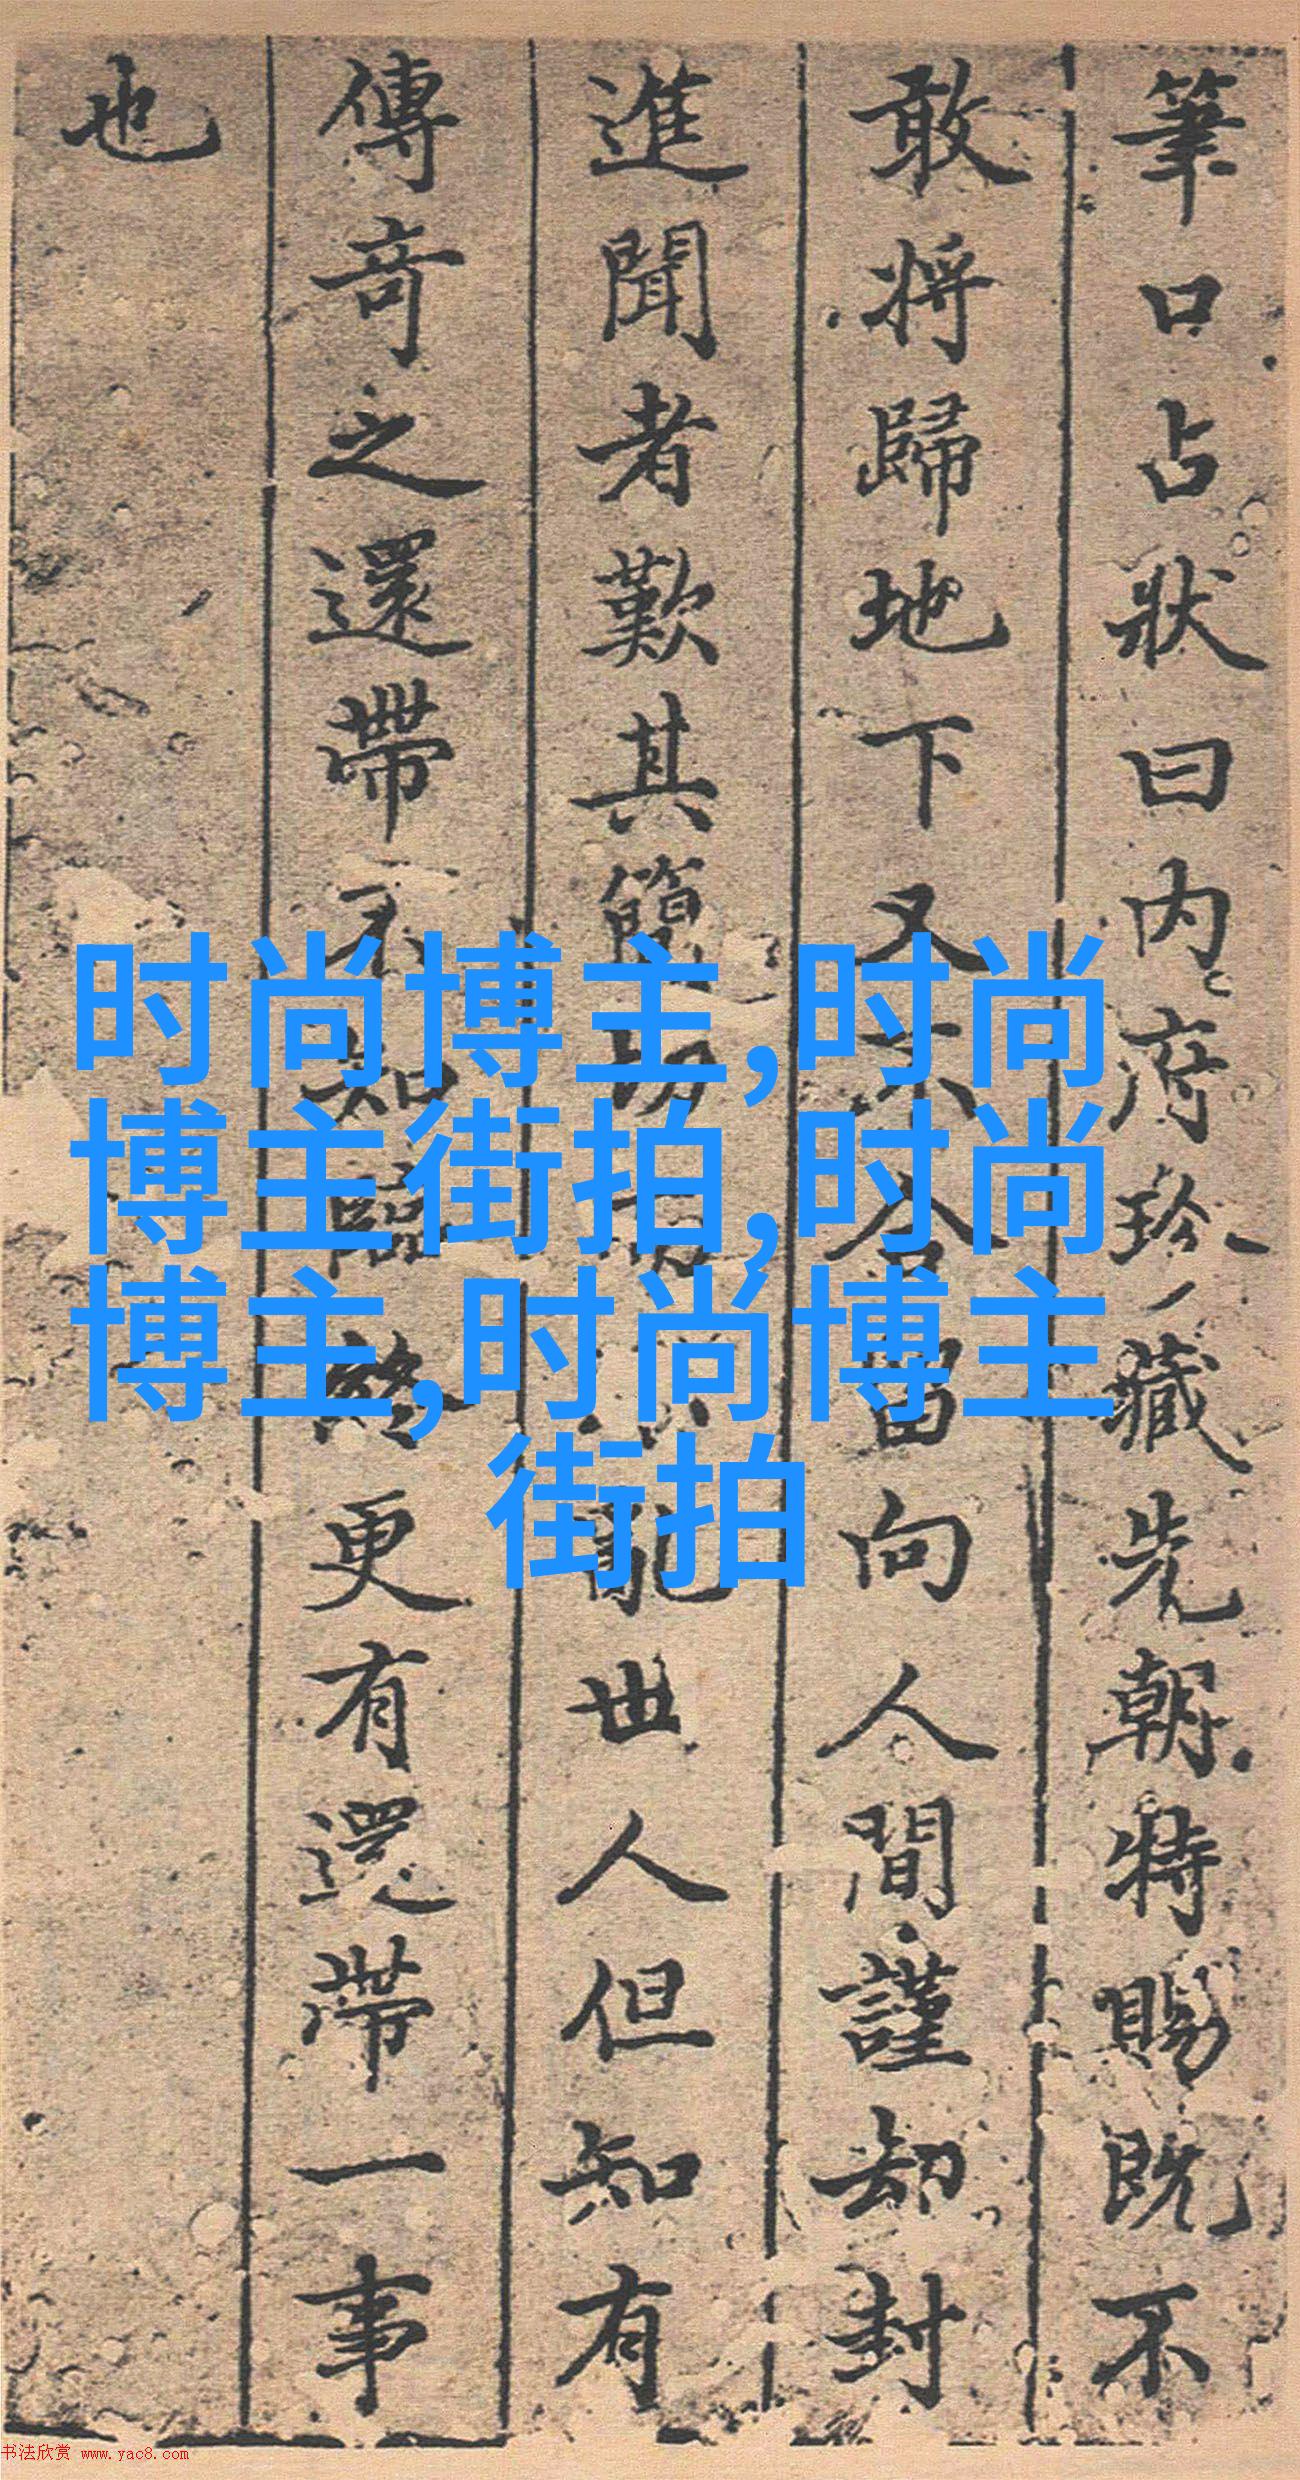 筆口占狀曰内府珍藏先朝特賜既不
敢将歸地下又不合留向人間謹却封
進聞者歎其簡切不亂世人但知有
傳奇之還帶不知臨終更有還帶一事
也
时尚博主,时尚
博主街拍,时尚
博主,时尚博主
街拍
书法欣赏 www.yac8.com